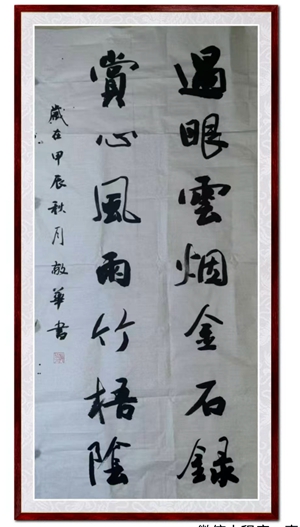 過眼雲烟金石録
賞心風雨竹梧陰
歲在甲辰秋月敬華書